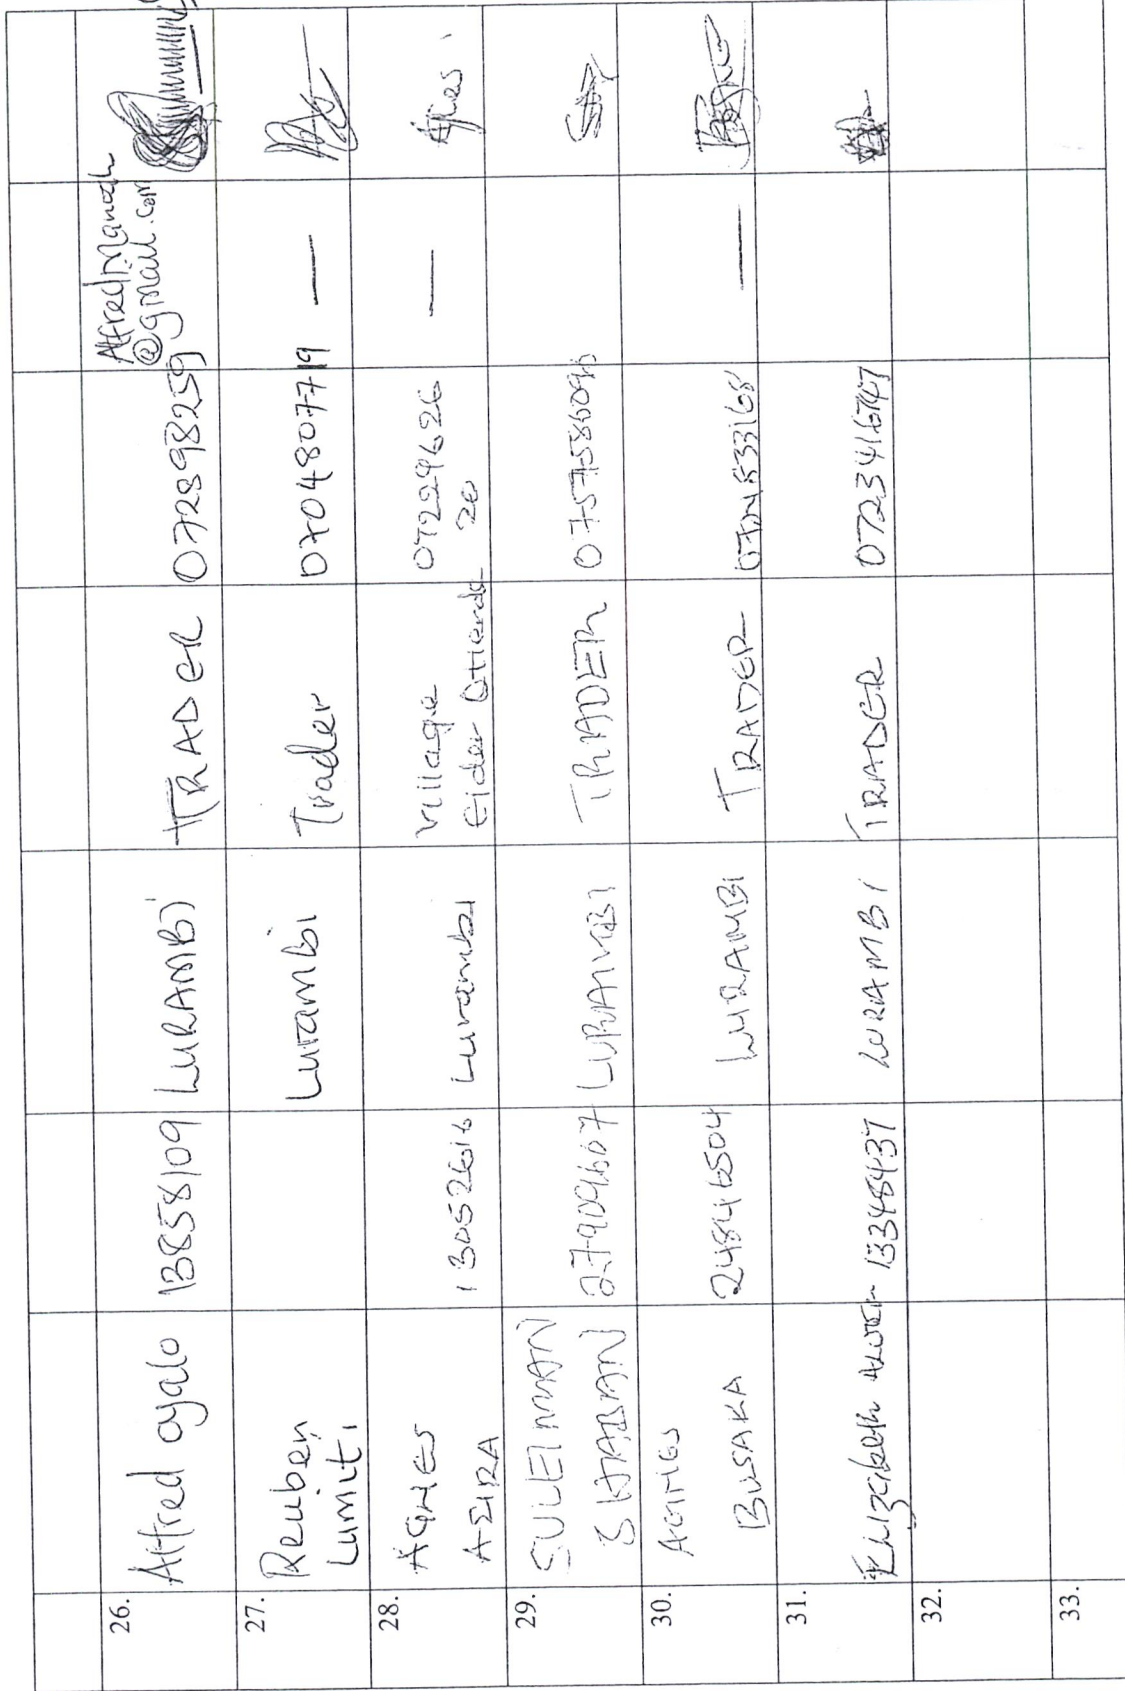 26. Alfred oyalo 13858109 LURAMBI TRADER 0728988259 Alfredmanoah
@gmail.com
27. Reuben
Lumiti Lurambi Trader 0704807719 —
28. AGNES
ASIRA 13052616 Lurambi Village
Elder 07229626
20 — Agnes
29. SULEIMAN
SHABAN 27909607 LURAMBI TRADER 0757586096
30. AGNES
BUSAKA 24846504 LURAMBI TRADER —
31. Elizabeth 13348437 LURAMBI TRADER
32.
33.